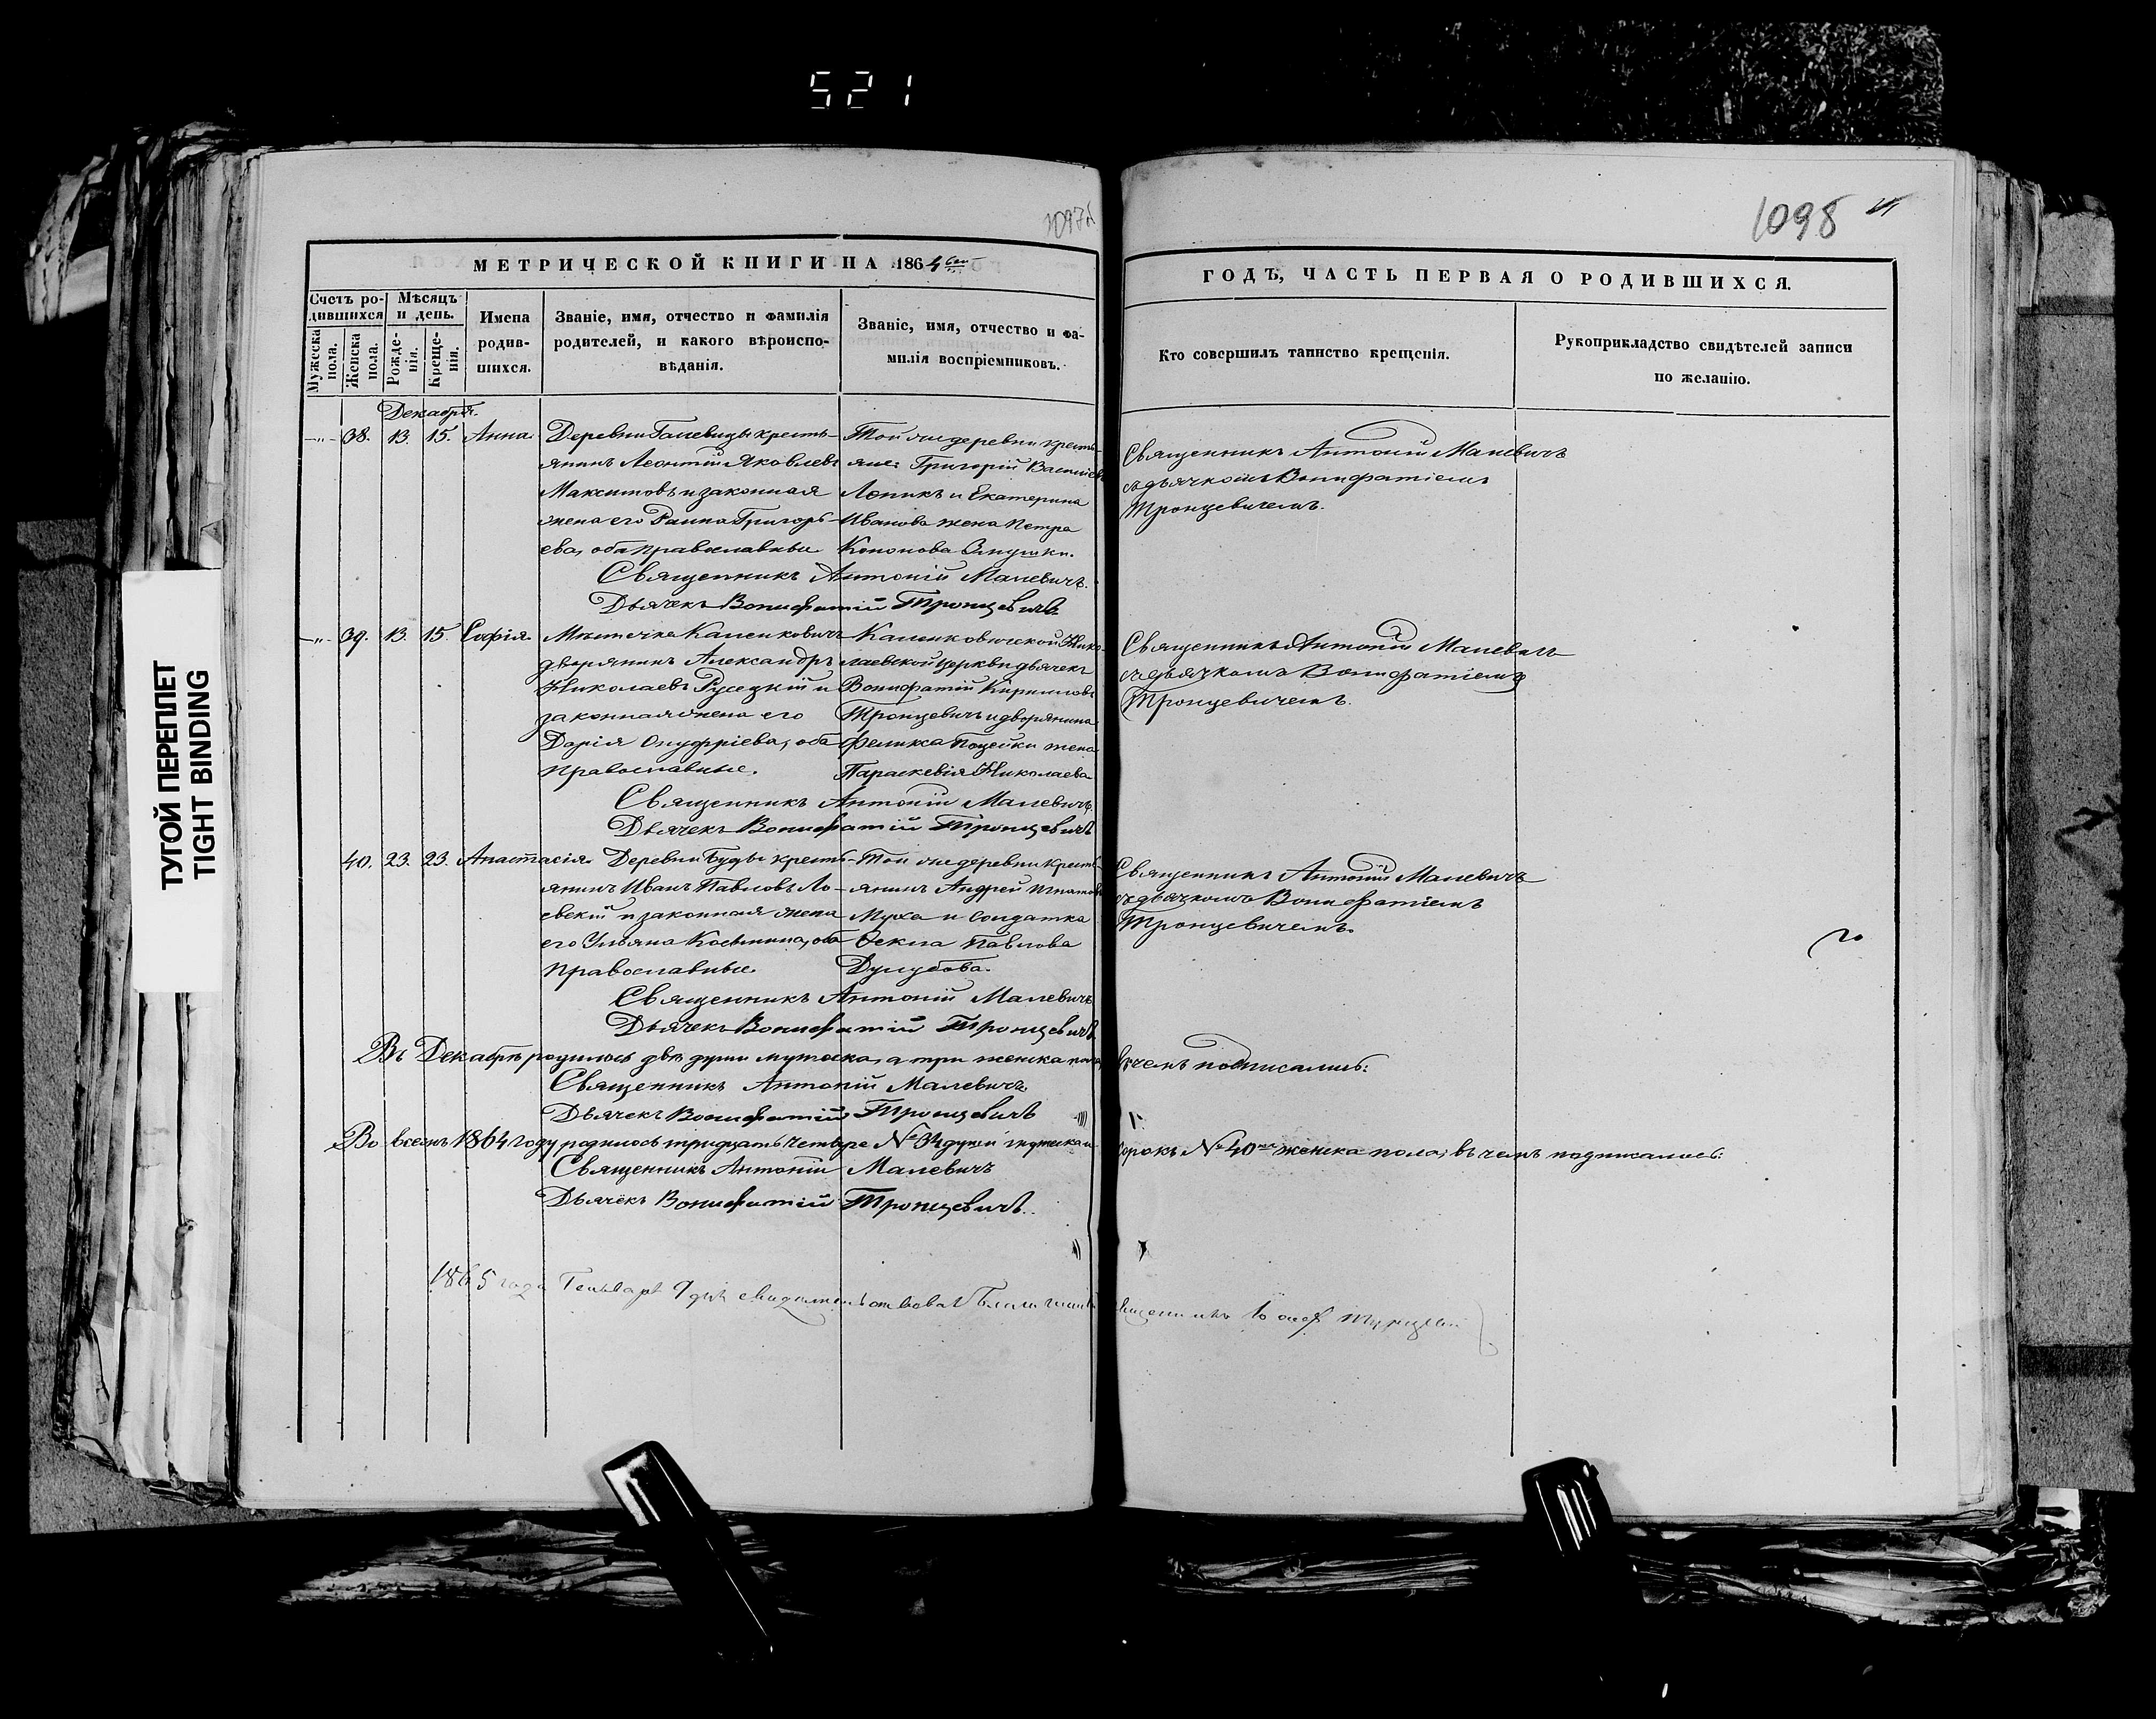 521
1098
МЕТРИЧЕСКОЙ КНИГИ НА 1864
ГОДЪ, ЧАСТЬ ПЕРВАЯ О РОДИВШИХСЯ.
Счетъ ро-
дившихся
Мужеска пола.
Женска пола.
Мѣсяцъ
и день.
Рожде-
нія.
Креще-
нія.
Имена
родив-
шихся.
Званіе, имя, отчество и фамилія
родителей, и какого вѣроиспо-
вѣданія.
Званіе, имя, отчество и фа-
милія воспріемниковъ.
Кто совершилъ таинство крещенія.
Рукоприкладство свидѣтелей записи
по желанію.
Декабря.
38. 13. 15. Анна.
Деревни кресть-
янинъ Леонтій Яковлевъ
Максимовъ и законная
жена его Григорь-
ева, оба православные
Той же деревни кресть-
яне: Григорій
и Екатерина
Иванова жена Петра
Кононова
Священникъ Антоній Малевичъ
съ дьячкомъ Вонифатіемъ
Тронцевичемъ.
Священникъ Антоній Малевичъ.
Дьячекъ Вонифатій Тронцевичъ.
39. 13. 15. Софія.
Мѣстечка
дворянинъ Александръ
Николаевъ Русецкій и
законная жена его
Дарія Онуфріева, оба
православные.
Нико-
лаевской церкви дьячекъ
Вонифатій Кирилловъ
Тронцевичъ и дворянина
Феликса жена
Параскевія Николаева
Священникъ Антоній Малевичъ
съ дьячкомъ Вонифатіемъ
Тронцевичемъ.
Священникъ Антоній Малевичъ,
Дьячекъ Вонифатій Тронцевичъ
40. 23. 23. Анастасія.
Деревни Буды кресть-
янинъ Иванъ Павловъ Ло-
евскій и законная жена
его Ульяна Косьмина, оба
православные.
Той же деревни кресть-
янинъ Андрей Игнатовъ
Муха и солдатка
Ѳекла Павлова
Священникъ Антоній Малевичъ
съ дьячкомъ Вонифатіемъ
Тронцевичемъ.
Священникъ Антоній Малевичъ
Дьячекъ Вонифатій Тронцевичъ.
Въ Декабрѣ родилось двѣ души мужеска, а три женска пола, въ чемъ подписались:
Священникъ Антоній Малевичъ
Дьячекъ Вонифатій Тронцевичъ
Во всемъ 1864 году родилось тридцать четыре № 34 души мужеска и сорокъ № 40 женска пола, въ чемъ подписались:
Священникъ Антоній Малевичъ
Дьячекъ Вонифатій Тронцевичъ.
1865 года Генваря 9 дня
ТУГОЙ ПЕРЕПЛЕТ
TIGHT BINDING